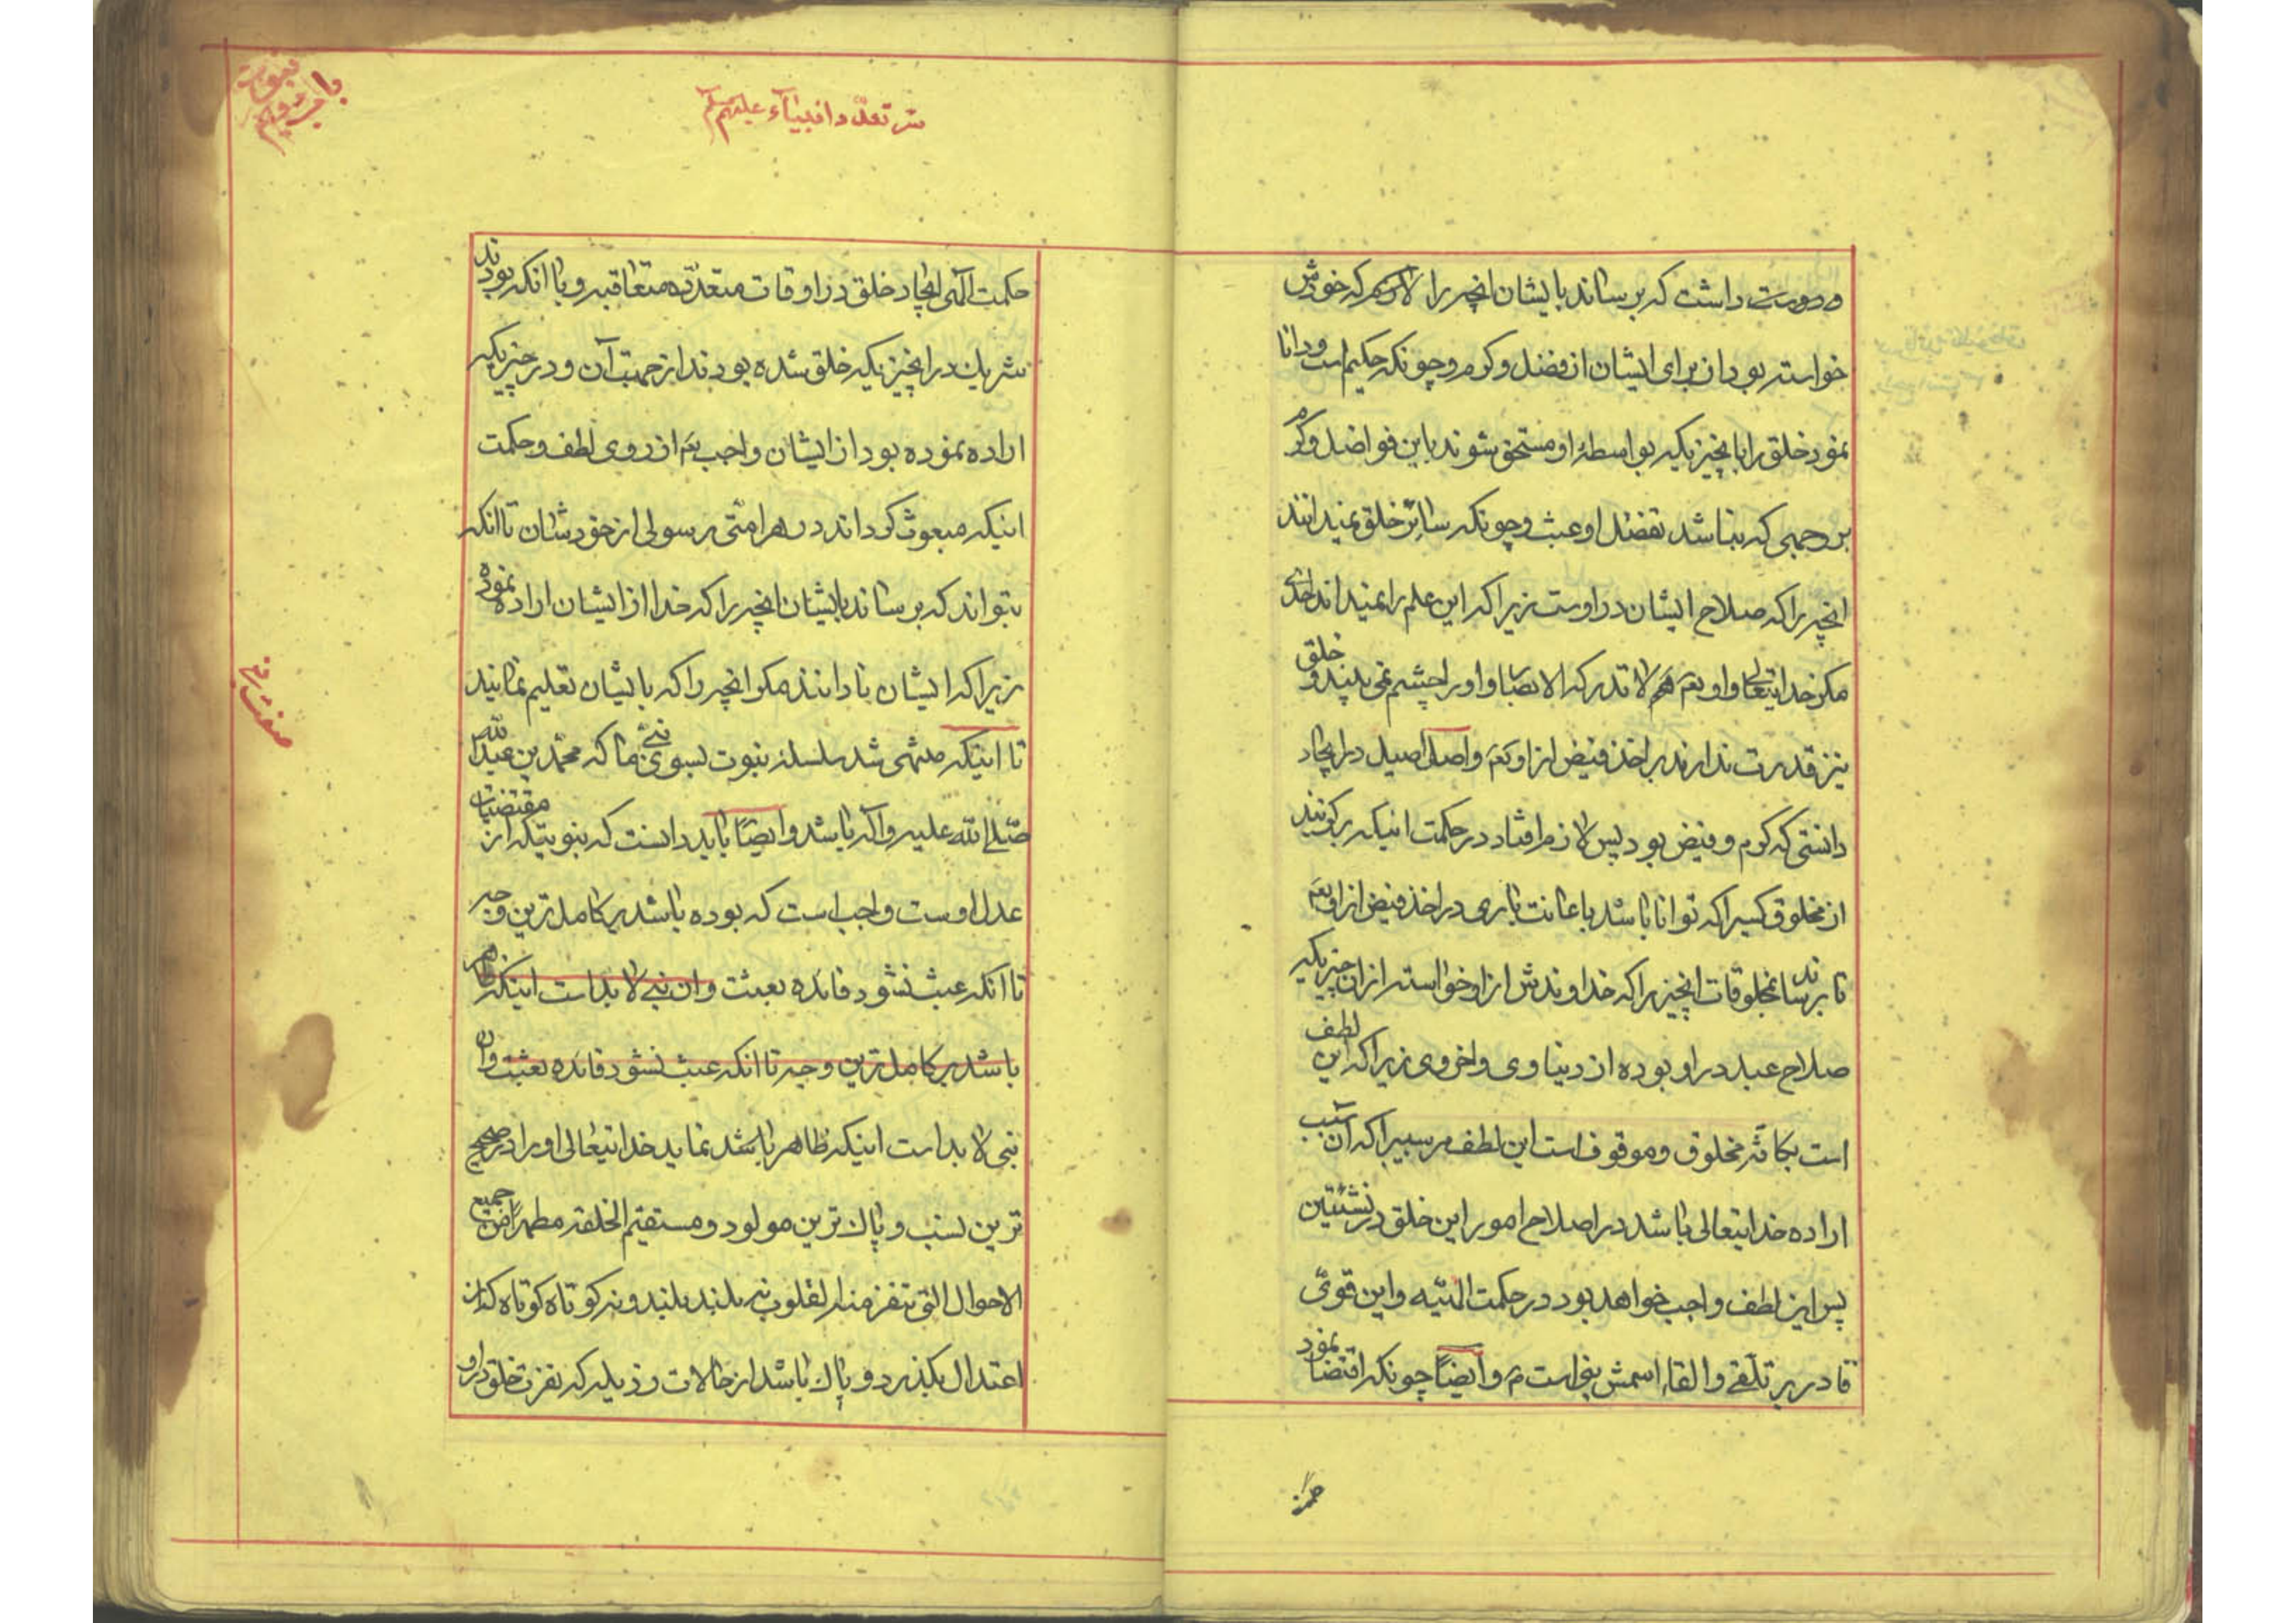 و دوست داشت که برساند بایشان انچه را لازم که خودش
خواسته بود از برای ایشان از فضل و کرم و چونکه حکیم است و دانا
نمود خلق را بانچیزیکه بواسطهٔ او مستحق شوند باین فواضل و کرم
بر وجهی که نباشد تفضل او عبث و چونکه سائر خلق نمیدانند
انچه را که صلاح ایشان در اوست زیرا که این علم را نمیداند احدی
مکر خدایتعالی و او بعم هم لا تدرکه الابصار او را بچشم نمی بیند و خلق
نیز قدرت ندارند بر اخذ فیض از او بعم و اصل اصیل در ایجاد
دانستی که کرم و فیض بود پس لازم افتاد در حکمت اینکه برکزیند
از مخلوق کسیرا که توانا باشد باعانت باری در اخذ فیض از او بعم
تا برساند بمخلوقات انچیزیرا که خداوندش از او خواسته از ان چیزیکه
صلاح عبد در او بوده از دنیاوی و اخروی زیرا که این لطف
است بکافهٔ مخلوق و موقوف است این لطف مر سببیرا که آن سبب
اراده خدایتعالی باشد در اصلاح امور این خلق در نشئتین
پس این لطف واجب خواهد بود در حکمت الهیه و این قوی
قادر بر تلقی و القاء اسمش نبی است م و ایضاً چونکه اقتضا نمود
حکمت
سر تعدد انبیآء علیهم السلام
باب دویم نبوت
حکمت الهی ایجاد خلق در اوقات متعدده متعاقبه و با انکه بودند
شریک در انچیزیکه خلق شده بودند از جهت آن و در چیزیکه
اراده نموده بود از ایشان واجب بعم از روی لطف و حکمت
اینکه مبعوث کرداند در هر امتی رسولی از خودشان تا انکه
بتواند که برساند بایشان انچه را که خدا از ایشان اراده نموده
زیرا که ایشان نادانند مکر انچه را که بایشان تعلیم نمایند
تا اینکه منتهی شد سلسلهٔ نبوت بسوی نبی ما که محمد بن عبدالله
صلی الله علیه و آله باشد و ایضاً باید دانست که نبوتیکه از مقتضیات
عدل اوست واجب است که بوده باشد بر کامل ترین وجه
تا انکه عبث نشود فائده بعثت و ان نبی لا بد است اینکه ظاهر
باشد بر کامل ترین وجه تا انکه عبث نشود فائده بعثت و ان
نبی لا بد است اینکه ظاهر باشد نماید خدایتعالی او را در صحیح
ترین نسب و پاک ترین مولود و مستقیم الخلقه مطهراً من جمیع
الاحوال التی تنفر منها القلوب نه بلند بلند و نه کوتاه کوتاه که از
اعتدال بکذرد و پاک باشد از حالات رذیله که نفرت خلق در او
صفت نبی